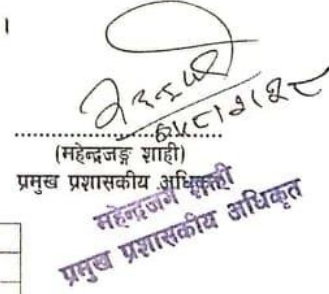 ।
(महेन्द्रजङ्ग शाही)
प्रमुख प्रशासकीय अधिकृत
महेन्द्रजंग शाही
प्रमुख प्रशासकीय अधिकृत